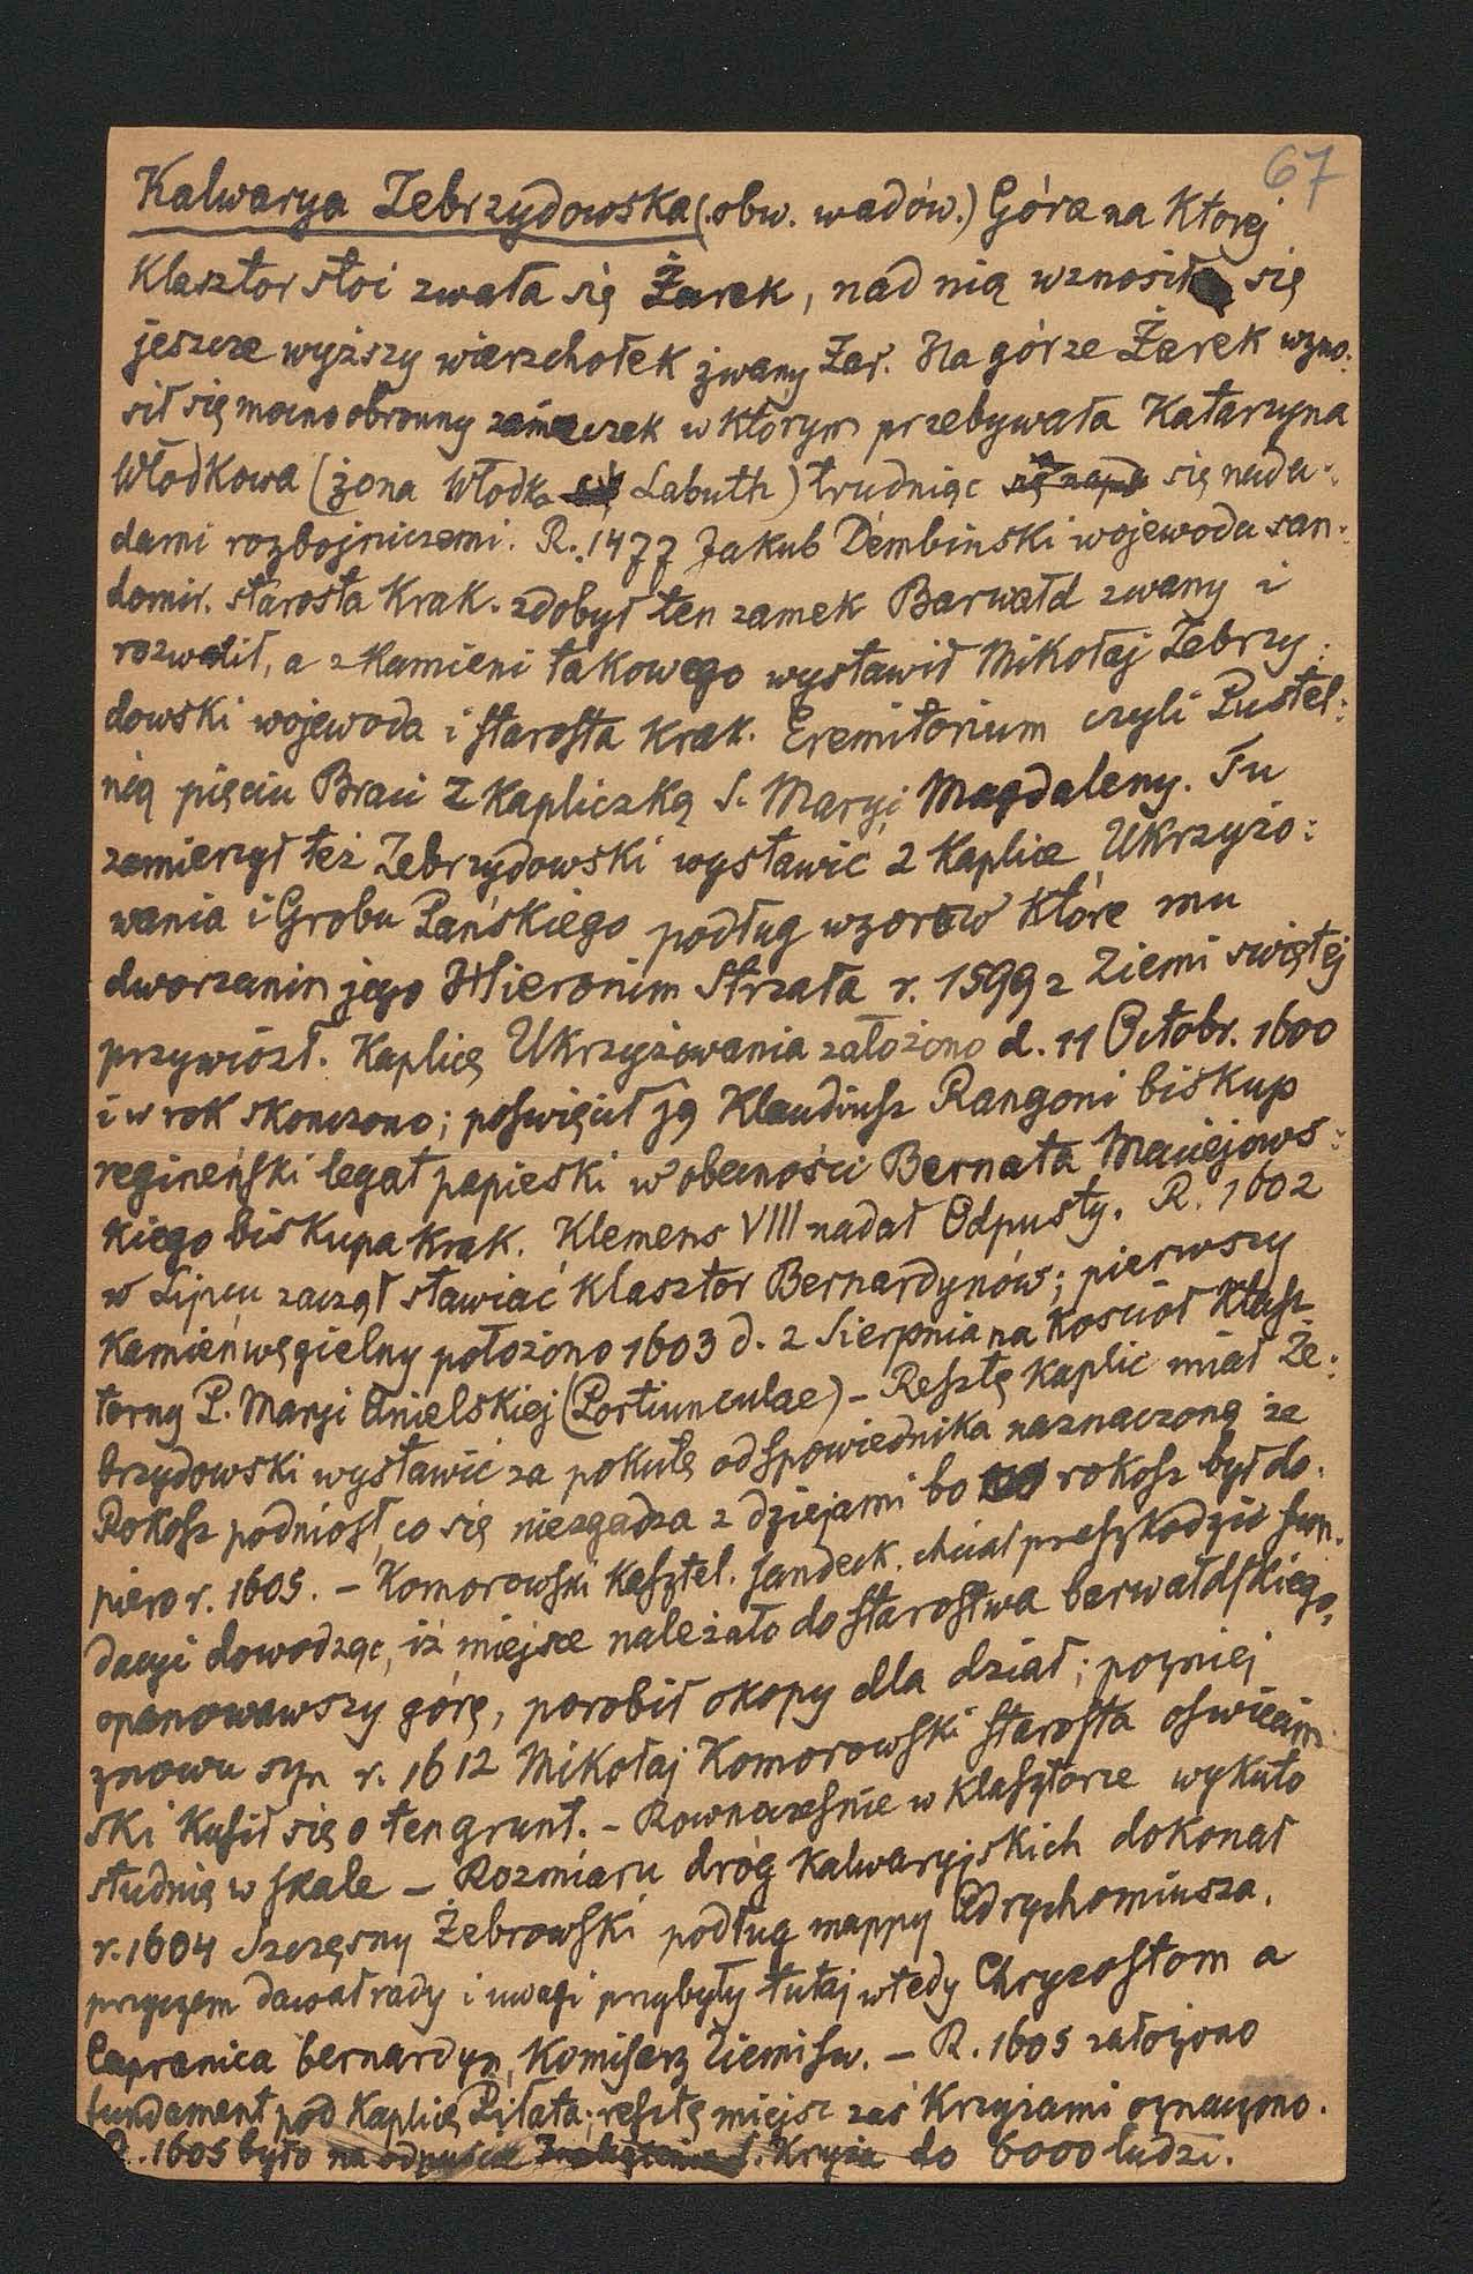 67
Kalwarya Zebrzydowska (.obw. wadów.) Góra na Ktorej
Klasztor stoi zwała się Żarek, nad nią wznosił się
jeszcze wyższy wierzchołek zwany Żar. Na górze Żarek wzno:
sił się mocno obronny zameczek w Ktorym przebywała Katarzyna
Włodkowa (żona Włodka Labuth) trudniąc się nada:
dami rozbojniczemi. R. 1477 Jakub Dembinski wojewoda san:
domir. starosta Krak. zdobył ten zamek Barwałd zwany i
rozwalił, a z Kamieni takowego wystawił Mikołaj Zebrzy:
dowski wojewoda i starosta Krak. Eremitorium czyli Pustel:
nią pięciu Braci z Kapliczką S. Maryi Magdaleny. Tu
zamierzył też Zebrzydowski wystawić 2 Kaplice Ukrzyżo:
wania i Grobu Pańskiego podług wzorów Które mu
dworzanin jego Hieronim Strzała r. 1599 z Ziemi swiętej
przywiózł. Kaplicę Ukrzyżowania założono d. 11 Octobr. 1600
i w rok skonczono; poswięcił ją Klaudiusz Rangoni biskup
regineński legat papieski w obecności Bernata Maciejows:
kiego biskupa Krak. Klemens VIII nadał Odpusty. R. 1602
w Lipcu zaczął stawiać Klasztor Bernardynów; pierwszy
Kamień węgielny położono 1603 d. 2 Sierpnia na Kościoł Klasz
torny P. Maryi Anielskiej (Portiunculae) – Resztę Kaplic miał Ze:
brzydowski wystawić za pokutę od spowiednika naznaczoną że
Rokosz podniosł, co się niezgadza z dziejami bo rokosz był do:
piero r. 1605. – Komorowski Kasztel. sandeck. chciał przeszkodzić fun:
dacyi dowodząc, iż miejsce należało do starostwa barwałdskiego,
opanowawszy górę, porobił okopy dla dział; pozniej
znowu syn r. 1612 Mikołaj Komorowski starosta oswiecim
ski Kusił się o ten grunt. – Rownoczesnie w klasztorze wykuto
studnię w skale – Rozmiaru dróg Kalwaryjskich dokonał
r. 1604 Szczęsny Żebrowski podług mappy Adrychomiusza,
przyczem dawał rady i uwagi przybyły tutaj wtedy Chryzostom a
Capranica bernardyn, Komisarz Ziemi sw. – R. 1605 założono
fundament pod Kaplicę Piłata; resztę miejsc zaś Krzyżami oznaczono.
R. 1605 było na odpuście S. Krzyża do 6000 ludzi.